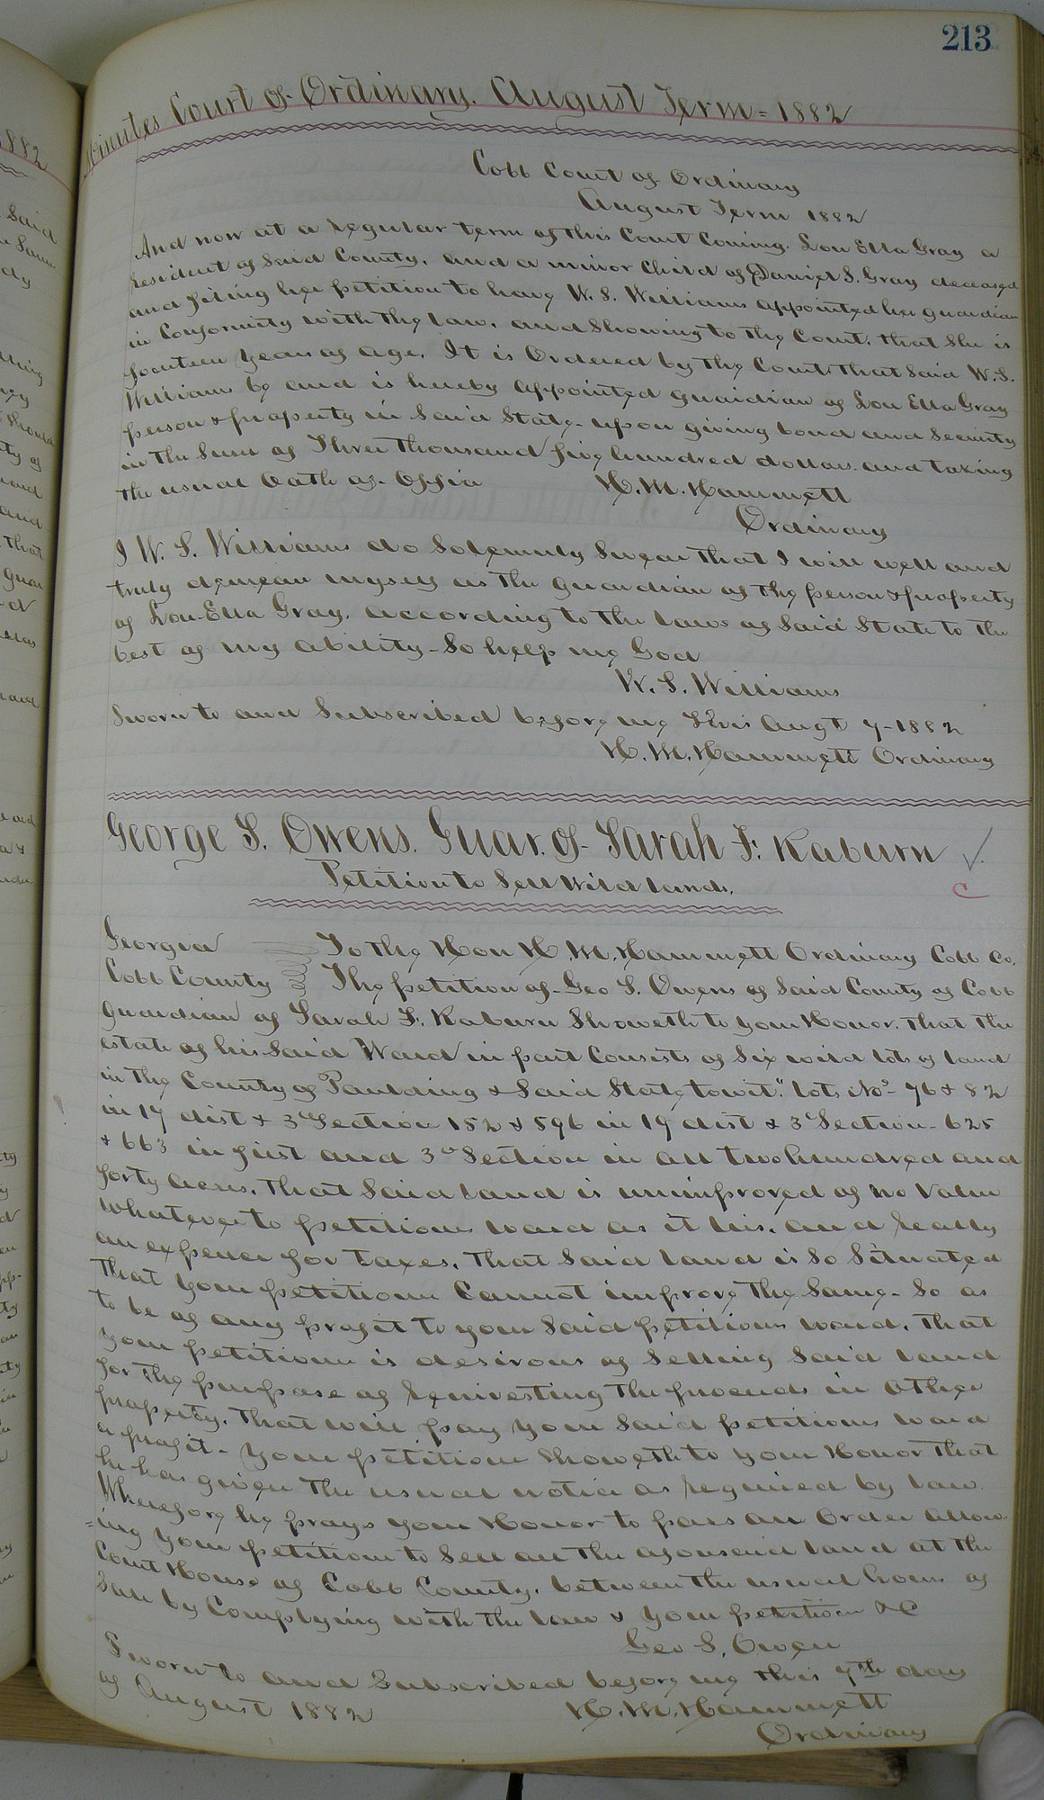 213
Minutes Court of Ordinary. August Term = 1882
Cobb Court of Ordinary
August Term 1882
And now at a regular term of this Court Coming. Lou Ella Gray a
resident of Said County, and a minor Child of Daniel S. Gray deceased
and filing her petition to have W. S. Williams appointed her guardian
in Conformity with the law, and Showing to the Court, that She is
fourteen years of age. It is Ordered by the Court that Said W. S.
Williams be and is hereby appointed guardian of Lou Ella Gray
person & property in Said State upon giving bond and Security
in the Sum of Three thousand five hundred dollars and taking
the usual Oath of Office H. M. Hammett
Ordinary
I W. S. Williams do Solemnly Swear that I will well and
truly demean myself as the guardian of the person & property
of Lou-Ella Gray, according to the laws of Said State to the
best of my ability - So help me God
W. S. Williams
Sworn to and Subscribed before me this Augt 7-1882
H. M. Hammett Ordinary
George S. Owens. Guar. of Sarah F. Raburn
C
Petition to Sell Wild lands.
Georgia To the Hon H. M. Hammett Ordinary Cobb Co.
Cobb County The petition of Geo S. Owens of Said County of Cobb
guardian of Sarah F. Raburn Showeth to your Honor, that the
estate of his Said Ward in part Consists of Six wild lots of land
in the County of Paulding & Said State towit: lots Nos 76 & 82
in 19 dist & 3d Section 152 & 596 in 19 dist & 3d Section - 625
& 663 in first and 3d Section in all two hundred and
forty acres. That Said land is unimproved of no Value
whatever to petitioners ward as it lies, and really
an expence for taxes. That Said land is So Situated
that your petitioner Cannot improve the Same So as
to be of any profit to your Said petitioners ward. That
your petitioner is desirous of Selling Said land
for the purpose of reinvesting the proceeds in Other
property. That will pay your Said petitioners ward
a profit - your petitioner Showeth to your Honor that
he has given the usual notice as required by law.
Wherefore he prays your Honor to pass an Order allow-
=ing your petitioner to Sell all the aforesaid land at the
Court House of Cobb County, between the usual hours of
Sale by Complying with the law & your petitioner &C
Geo S. Owens
Sworn to and Subscribed before me this 7th day
of August 1882 H. M. Hammett
Ordinary